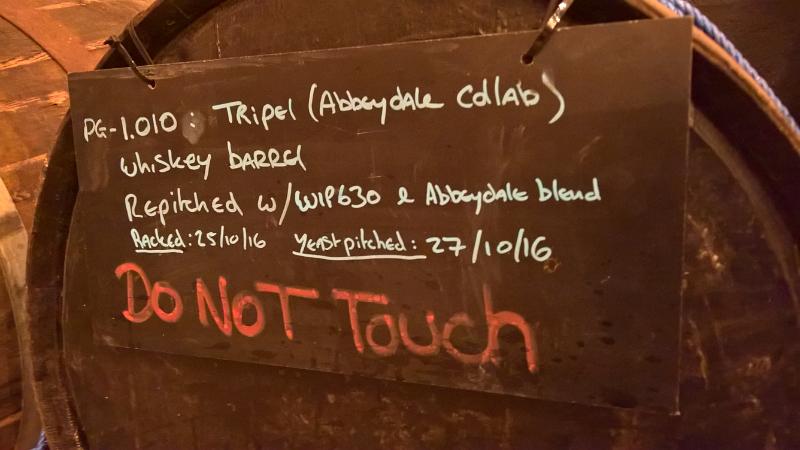 PG-1.010 : Tripel (Abbeydale Collab)
whiskey barrel
Repitched w/WLP630 & Abbeydale blend
Racked: 25/10/16 Yeast pitched: 27/10/16
Do NOT Touch